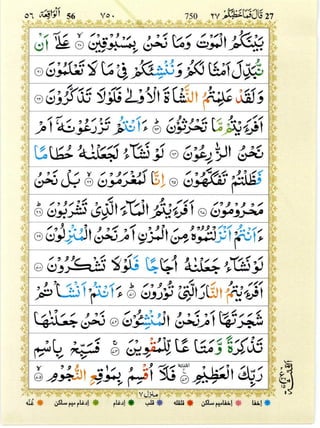 ٥٦ الواقعة 56 ٧٥٠ 750 قال فما خطبكم ٢٧ 27
بَيْنَكُمُ الْمَوْتَ وَمَا نَحْنُ بِمَسْبُوْقِيْنَ ۙ عَلٰٓى اَنْ
نُّبَدِّلَ اَمْثَالَكُمْ وَنُنْشِئَكُمْ فِىْ مَا لَا تَعْلَمُوْنَ
وَلَقَدْ عَلِمْتُمُ النَّشْاَةَ الْاُوْلٰى فَلَوْلَا تَذَكَّرُوْنَ
اَفَرَءَيْتُمْ مَّا تَحْرُثُوْنَ ؕ ءَاَنْتُمْ تَزْرَعُوْنَهٗۤ اَمْ
نَحْنُ الزّٰرِعُوْنَ لَوْ نَشَآءُ لَجَعَلْنٰهُ حُطَامًا
فَظَلْتُمْ تَفَكَّهُوْنَ اِنَّا لَمُغْرَمُوْنَ ۙ بَلْ نَحْنُ
مَحْرُوْمُوْنَ اَفَرَءَيْتُمُ الْمَآءَ الَّذِىْ تَشْرَبُوْنَ ؕ
ءَاَنْتُمْ اَنْزَلْتُمُوْهُ مِنَ الْمُزْنِ اَمْ نَحْنُ الْمُنْزِلُوْنَ
لَوْ نَشَآءُ جَعَلْنٰهُ اُجَاجًا فَلَوْلَا تَشْكُرُوْنَ
اَفَرَءَيْتُمُ النَّارَ الَّتِىْ تُوْرُوْنَ ؕ ءَاَنْتُمْ اَنْشَاْتُمْ
شَجَرَتَهَاۤ اَمْ نَحْنُ الْمُنْشِئُوْنَ نَحْنُ جَعَلْنٰهَا
تَذْكِرَةً وَّمَتَاعًا لِّلْمُقْوِيْنَ ۚ فَسَبِّحْ بِاسْمِ
رَبِّكَ الْعَظِيْمِ فَلَاۤ اُقْسِمُ بِمَوٰقِعِ النُّجُوْمِ ۙ
منزل ٧
اخفا اخفا میم ساکن قلقلہ قلب ادغام ادغام میم ساکن غنّہ